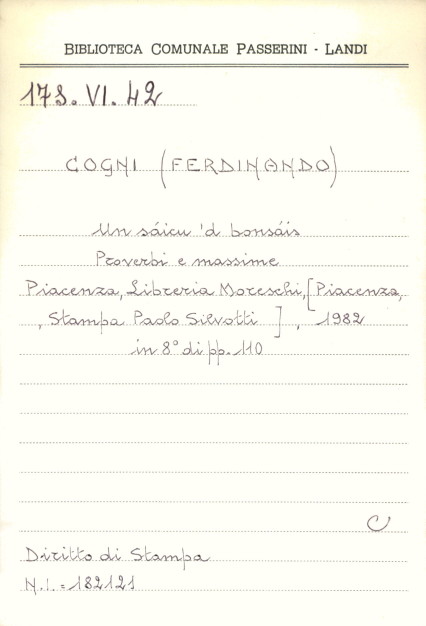 BIBLIOTECA COMUNALE PASSERINI - LANDI
17S. VI. 42
COGNI (FERDINANDO)
Un sáicu 'd bonsáis
Proverbi e massime
Piacenza, Libreria Moreschi, [Piacenza,
, Stampa Paolo Silvotti ] , 1982
in 8° di pp. 110
C
Diritto di Stampa
N.I. = 182121